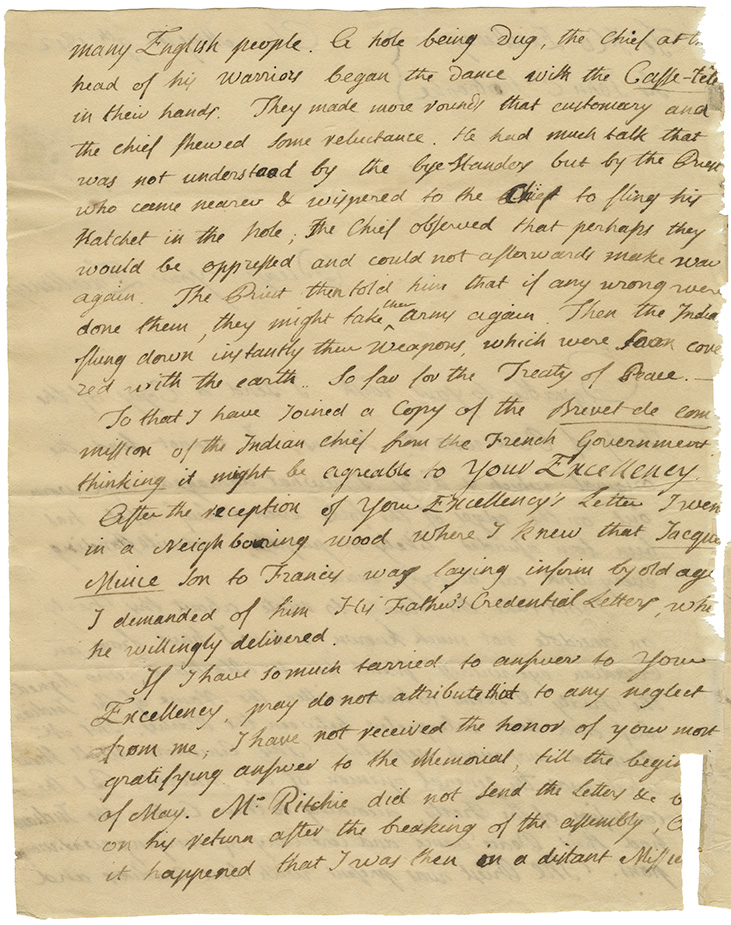 many English people. A hole being Dug, the Chief at th
head of his Warriors began the dance with the Casse-tête
in their hands. They made more rounds that customary and
the chief shewed some reluctance. He had much talk that
was not understood by the bye Standers but by the Priest
who came nearer & wispered to the Chief to fling his
Hatchet in the hole; the Chief observed that perhaps they
would be oppressed and could not afterwards make war
again. The Priest then told him that if any wrong were
done them, they might take their Arms again. Then the India
flung down instantly their Weapons, which were soon cove
red with the earth. So far for the Treaty of Peace. —
To that I have Joined a Copy of the Brevet de com
mission of the Indian Chief from the French Government
thinking it might be agreable to Your Excellency.
After the reception of Your Excellency's Letter I wen
in a Neighboaring wood where I knew that Jacque
Muice Son to Francis was laying infirm by old age
I demanded of him His Father's Credential Letters, whi
he willingly delivered.
If I have so much tarried to answer to Your
Excellency, pray do not attribute that to any neglect
from me; I have not received the honor of your most
gratifying answer to the Memorial, till the begin
of May. Mr Ritchie did not send the Letters &c b
on his return after the breaking of the assembly,
it happened that I was then in a distant Missi